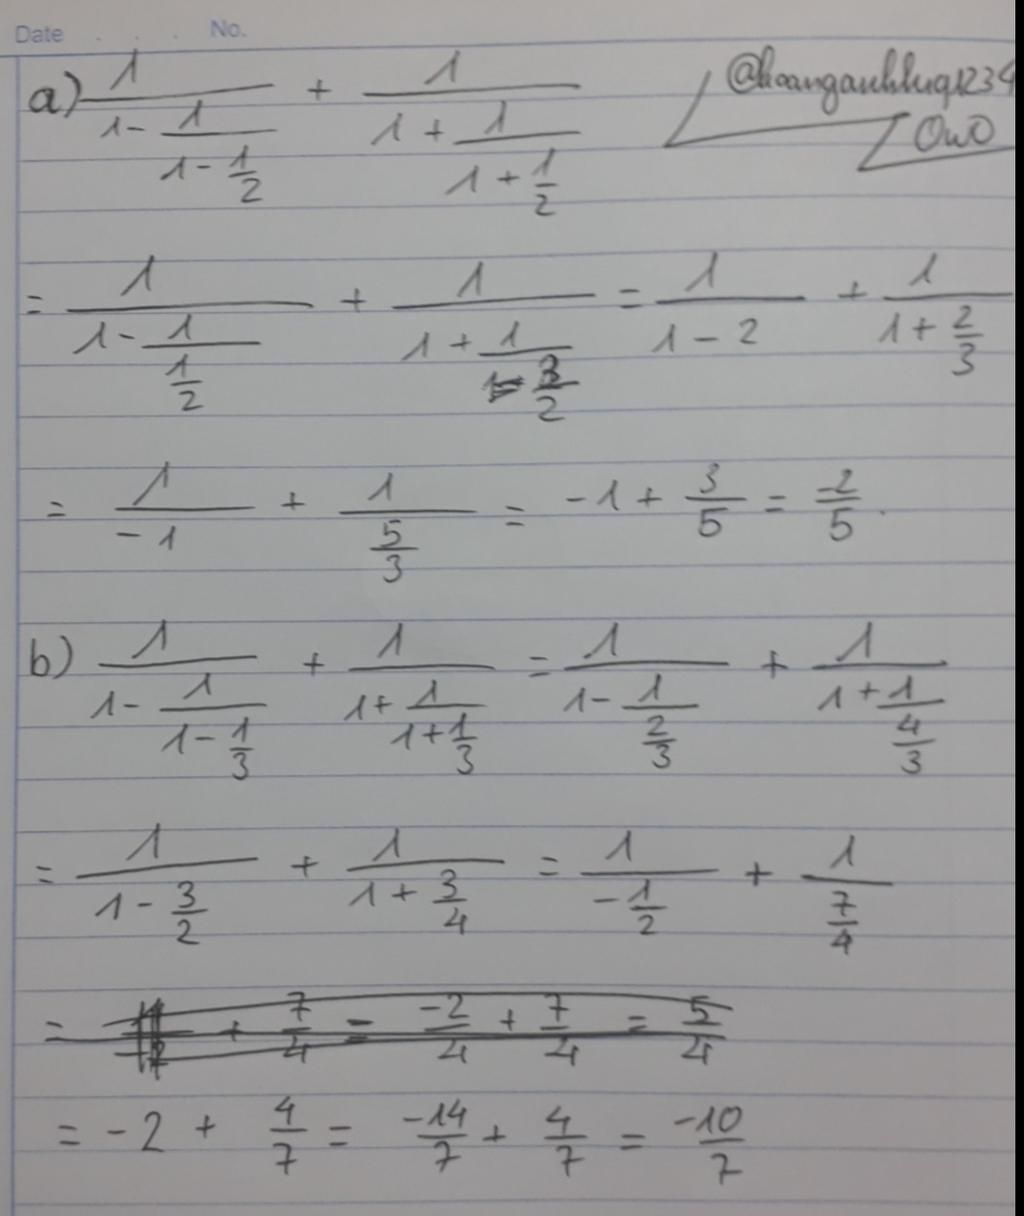 Date . . . No.
@hoanganhhuq1234
OwO
a) \frac{1}{1-\frac{1}{1-\frac{1}{2}}} + \frac{1}{1+\frac{1}{1+\frac{1}{2}}}
= \frac{1}{1-\frac{1}{\frac{1}{2}}} + \frac{1}{1+\frac{1}{\frac{3}{2}}} = \frac{1}{1-2} + \frac{1}{1+\frac{2}{3}}
= \frac{1}{-1} + \frac{1}{\frac{5}{3}} = -1 + \frac{3}{5} = \frac{-2}{5}.
b) \frac{1}{1-\frac{1}{1-\frac{1}{3}}} + \frac{1}{1+\frac{1}{1+\frac{1}{3}}} = \frac{1}{1-\frac{1}{\frac{2}{3}}} + \frac{1}{1+\frac{1}{\frac{4}{3}}}
= \frac{1}{1-\frac{3}{2}} + \frac{1}{1+\frac{3}{4}} = \frac{1}{-\frac{1}{2}} + \frac{1}{\frac{7}{4}}
= + \frac{7}{4} = \frac{-2}{4} + \frac{7}{4} = \frac{5}{4}
= -2 + \frac{4}{7} = \frac{-14}{7} + \frac{4}{7} = \frac{-10}{7}